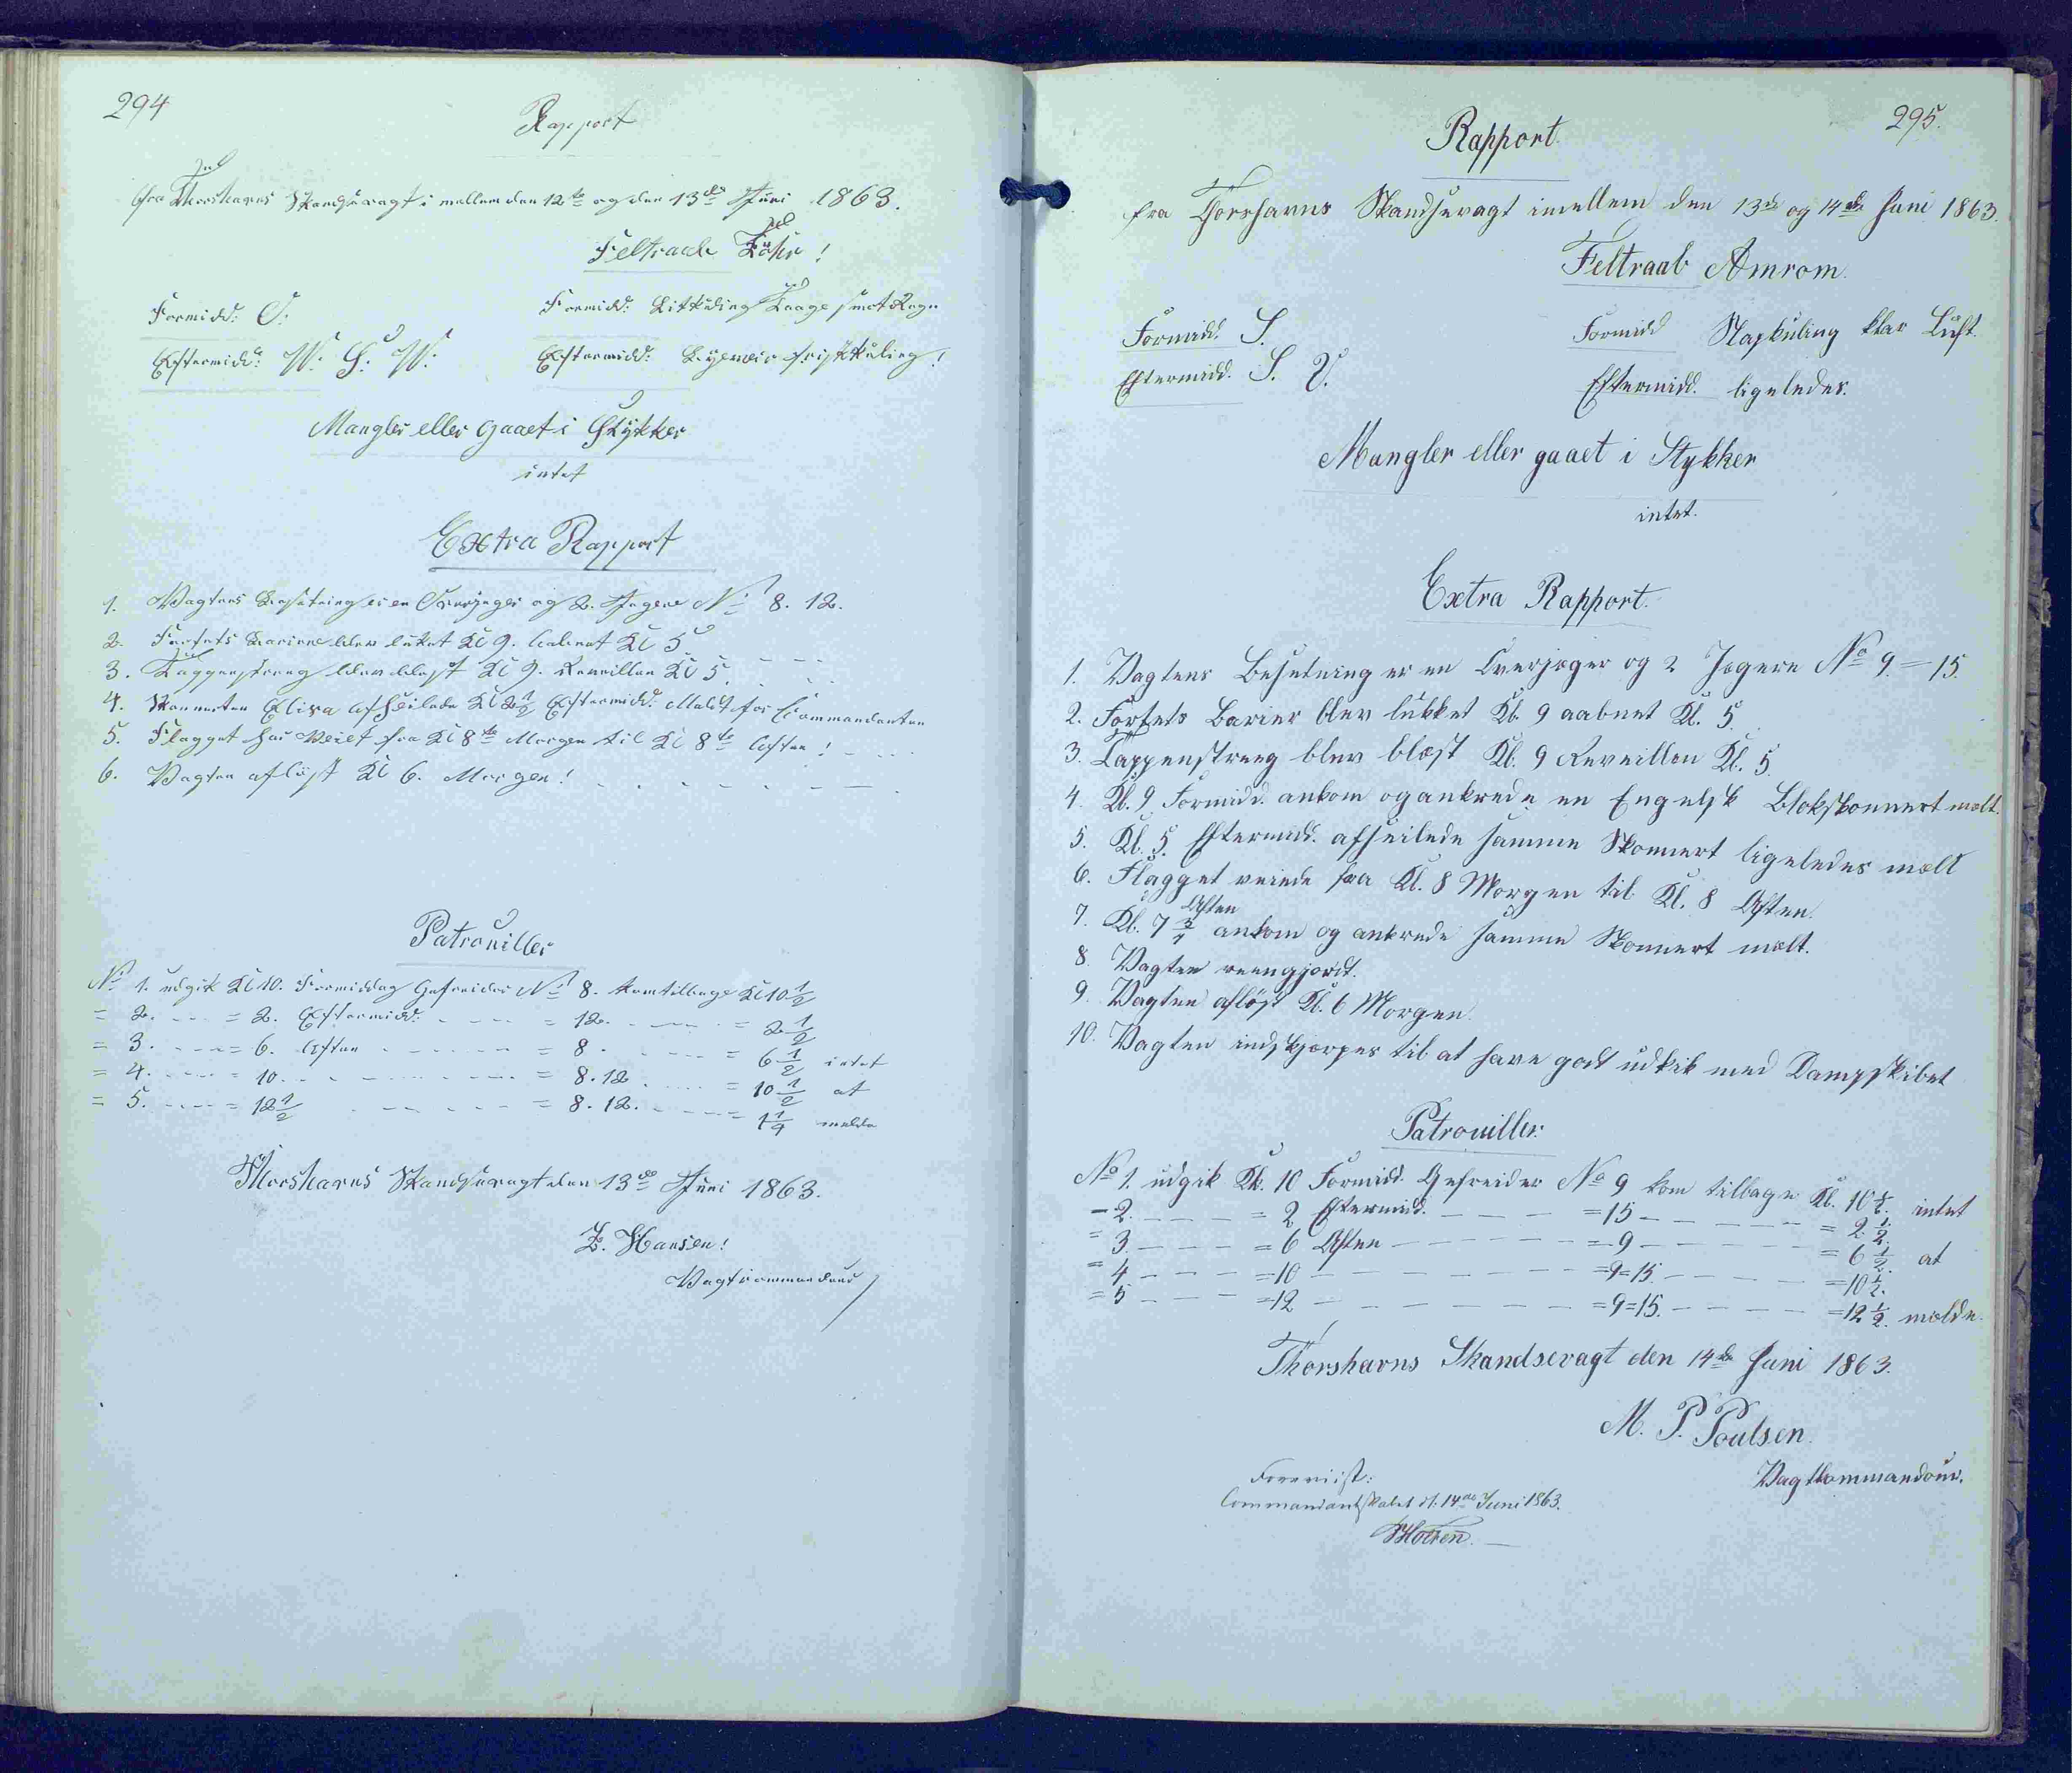 294
Rapport
fra Thorshavns Skandsevagt i mellem den 12te og den 13de Juni 1863.
Feltraab Föhr!
Formidd: S: Formidd: Bitkuling Taage smot Regn
Eftermidd: W. S. W. Eftermidd: frisk Kuling!
Mangler eller gaaet i Stykker
intet
Extra Rapport
1. Vagtens Besetning er en Overjæger og 2. Jægere No 8. 12.
2. Fortets Bariere blev lukket Kl 9. aabnet Kl 5
3. Tappenstreng blev blæst Kl 9. Reveillen Kl 5.
4. Skonnerten Elisa afseilede Kl 2 1/2 Eftermidd: Meldt for Commandanten
5. Flagget har Veiet fra Kl 8te Morgen til Kl 8te Aften!
6. Vagten afløst Kl 6. Morgen!
Patrouiller
No 1. udgik Kl 10. Formiddag Gefreider No 8. kom tilbage Kl 10 1/2
= 2. - - = 2. Eftermidd: - - = 12. - - = 2 1/2
= 3. - - = 6. Aften - - = 8 - - = 6 1/2 intet
= 4. - - = 10. - - = 8. 12 - - = 10 1/2 at
= 5. - - = 12 1/2 - - = 8. 12. - - = 1 1/4 melde
Thorshavns Skandsevagt den 13de Juni 1863.
Z. Hansen!
Vagtcommandeur
295.
Rapport.
fra Thorshavns Skandsevagt imellem den 13de og 14de Juni 1863.
Feltraab Amrom.
Formidd. S. Formidd Slapkuling klar Luft.
Eftermidd. S. V. Eftermidd. ligeledes.
Mangler eller gaaet i Stykker
intet.
Extra Rapport.
1. Vagtens Besetning er en Overjæger og 2 Jegere No 9 = 15.
2. Fortets Barier blev lukket Kl. 9 aabnet Kl. 5.
3. Tappenstreng blev blæst Kl. 9 Reveillen Kl. 5.
4. Kl. 9 Formidd. ankom og ankrede en Engelsk Blokskonnert mælt.
5. Kl. 5 Eftermidd. afseilede samme Skonnert ligeledes mælt
6. Flagget veiede fra Kl. 8 Morgen til Kl. 8 Aften.
7. Kl. 7 3/4 Aften ankom og ankrede samme Skonnert mælt.
8. Vagten reengjordt.
9. Vagten afløst Kl. 6 Morgen.
10. Vagten indskjærpes til at have godt udkik med Dampskibet
Patrouiller.
No 1. udgik Kl. 10 Formidd. Gefreider No 9 kom tilbage Kl. 10 1/2. intet
- 2. - - = 2 Eftermid. - - = 15 - - = 2 1/2.
= 3 - - = 6 Aften - - = 9 - - = 6 1/2. at
= 4 - - = 10 - - = 9 = 15. - - = 10 1/2.
= 5 - - = 12 - - = 9 = 15. - - = 12 1/2. mælde.
Thorshavns Skandsevagt den 14de Juni 1863.
M. P. Poulsen.
Vagtkommandour.
Foreviist:
Commandantskabet d. 14de Juni 1863.
HOlten.